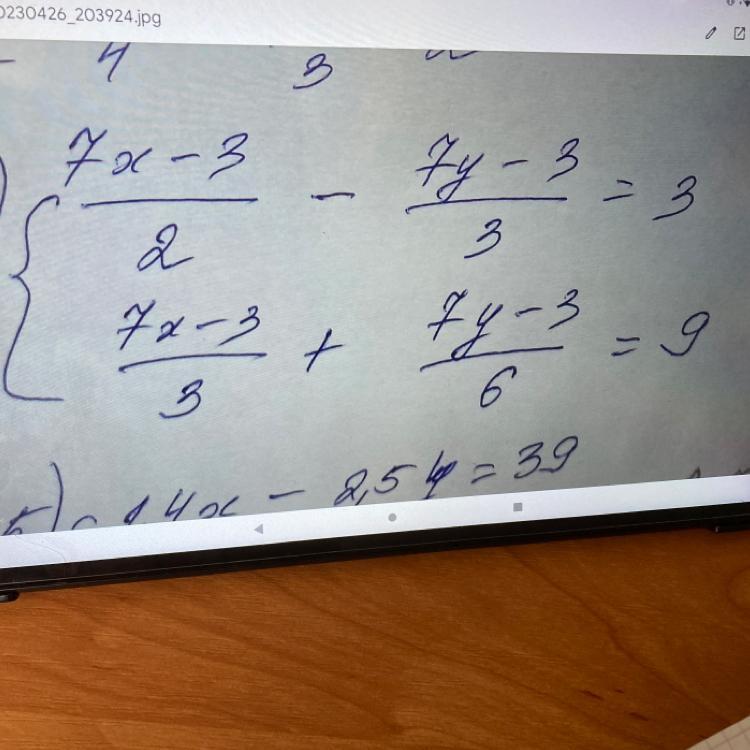 0230426_203924.jpg
4 3
7x-3/2 - 7y-3/3 = 3
7x-3/3 + 7y-3/6 = 9
5) 1,4x - 2,5y = 39